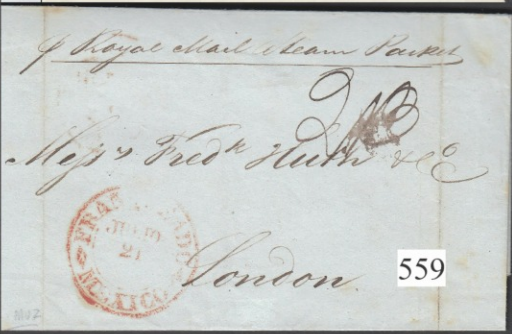 p Royal Mail Steam Packet
2/3
Mess.rs Fred.k Huth & Co
FRANQUEADO
JULIO
21
MEXICO
London
559